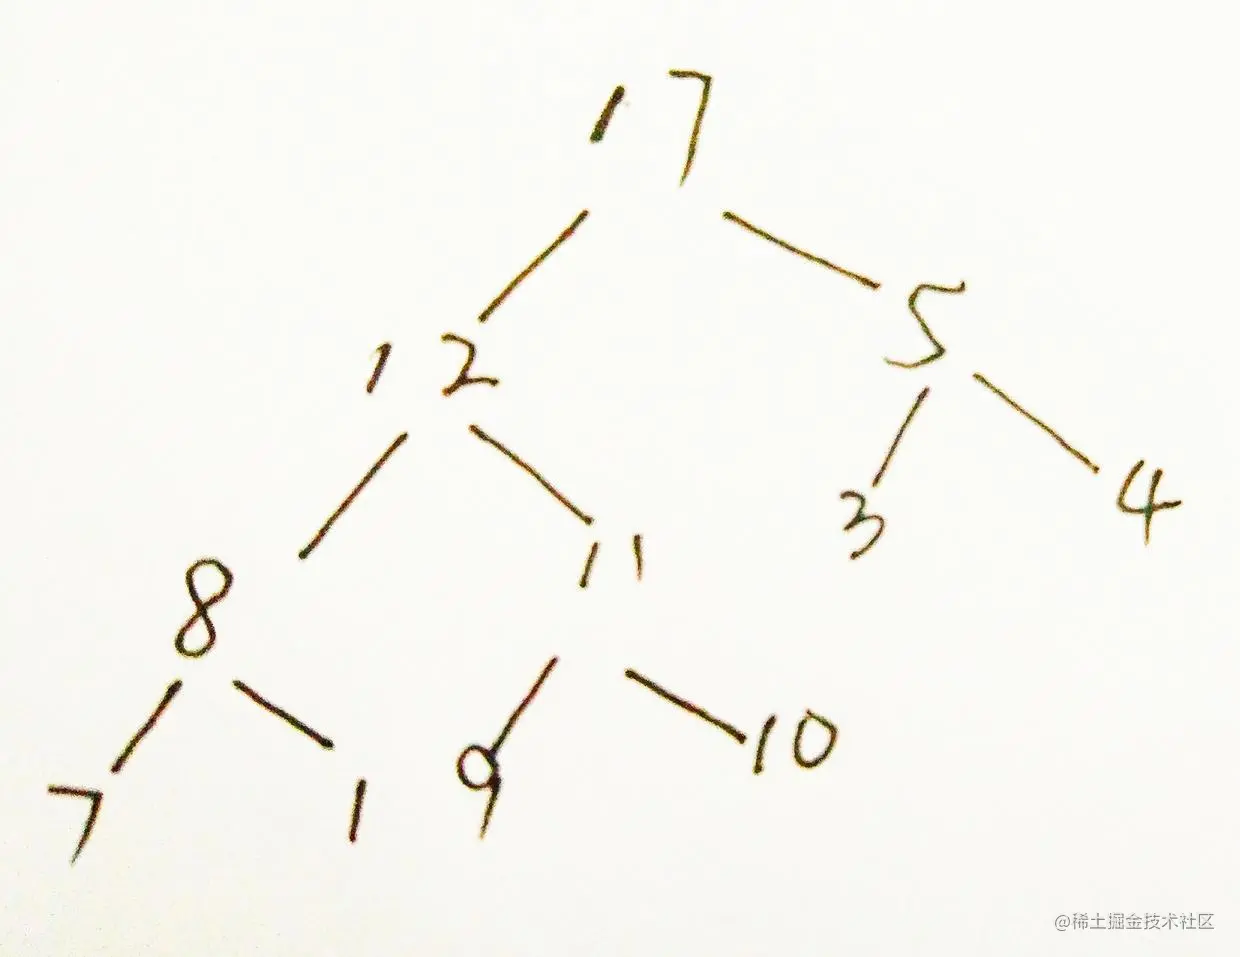 17
12 5
8 11 3 4
7 1 9 10
@稀土掘金技术社区